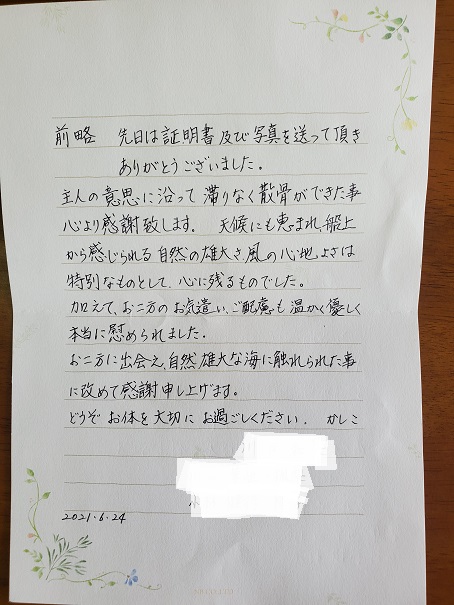 前略　先日は証明書及び写真を送って頂き
ありがとうございました。
主人の意思に沿って滞りなく散骨ができた事
心より感謝致します。　天候にも恵まれ、船上
から感じられる自然の雄大さ、風の心地よさは
特別なものとして、心に残るものでした。
加えて、お二方のお気遣い、ご配慮も温かく優しく
本当に慰められました。
お二方に出会え、自然雄大な海に触れられた事
に改めて感謝申し上げます。
どうぞお体を大切にお過ごしください．　かしこ
2021.6.24